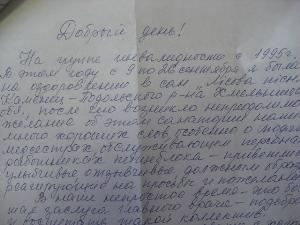 Добрый день!
На группе инвалидности с 1995г.
В этом году с 9 по 26 сентября я была
на оздоровлении в сан. "Лісова пісня"
Каменец-Подольского р-на Хмельницкой
обл. После чего возникло непреодолимое
желание об этом санатории напи
много хороших слов особенно о людях
медсестрах обслуживающем персонале
работниках пищеблока - приветливые
улыбчивые отзывчивые, должным образом
реагирующие на просьбы и пожелания
В наше непростое время - это бо
шая заслуга главного врача - подобрать
и воспитать такой коллектив.